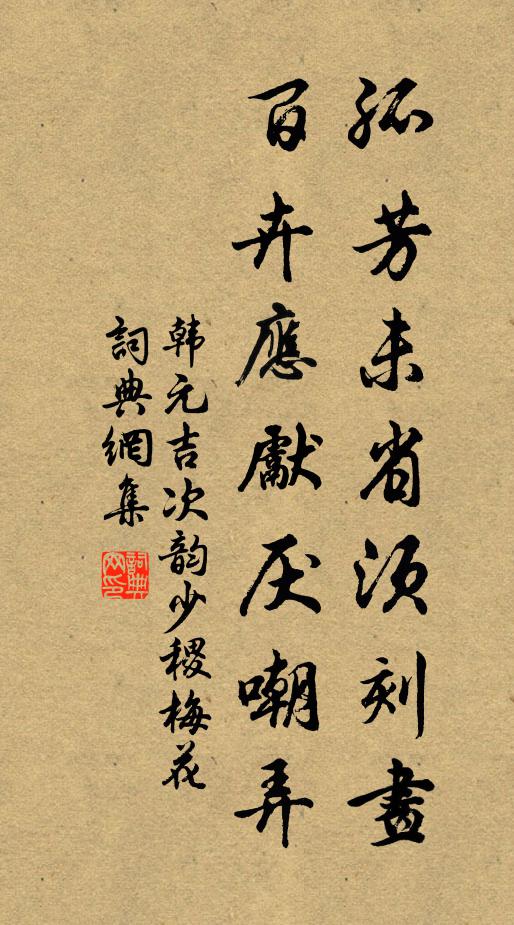 孤芳未省須刻畫
百卉應獻厌嘲弄
韩元吉次韵少稷梅花
詞典網集
詞典网印